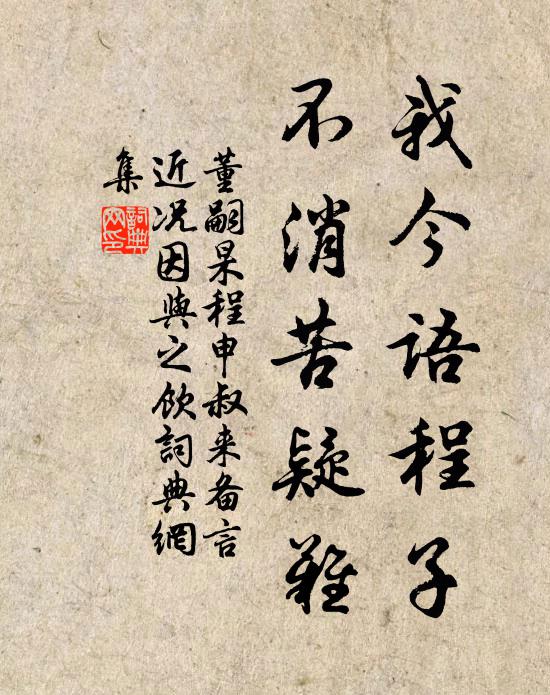 我今语程子
不消苦疑难
董嗣杲程申叔来备言
近况因与之饮词典网
集
詞典
网印